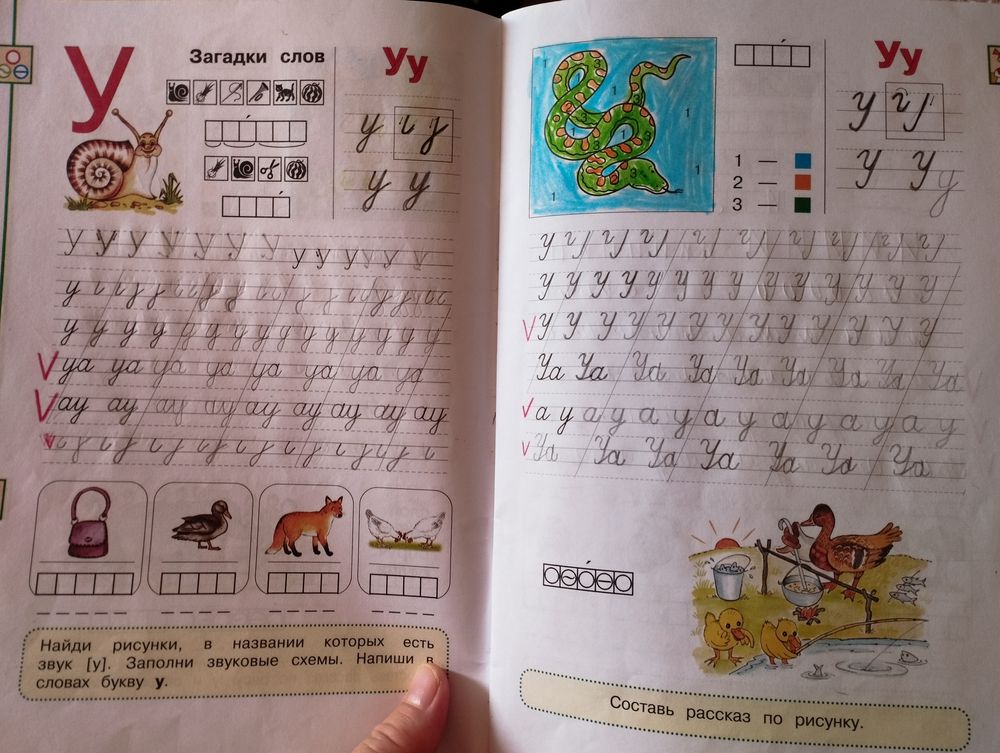 У
Загадки слов
Уу
у
у у
у у у у у у у у у у у у у
у
у у у у у у у у у у у у у у у
уа уа уа уа уа уа уа уа
ау ау ау ау ау ау ау ау ау
Найди рисунки, в названии которых есть
звук [у]. Заполни звуковые схемы. Напиши в
словах букву у.
1 1 1 1 1
3 3 3
1 —
2 —
3 —
Уу
У
У У у
У
У У У У У У У У У У У У У У У
У У У У У У У У У У У У У
Уа Уа Уа Уа Уа Уа Уа Уа Уа
а у а у а у а у а у а у а у а у
Уа Уа Уа Уа Уа Уа Уа
Составь рассказ по рисунку.